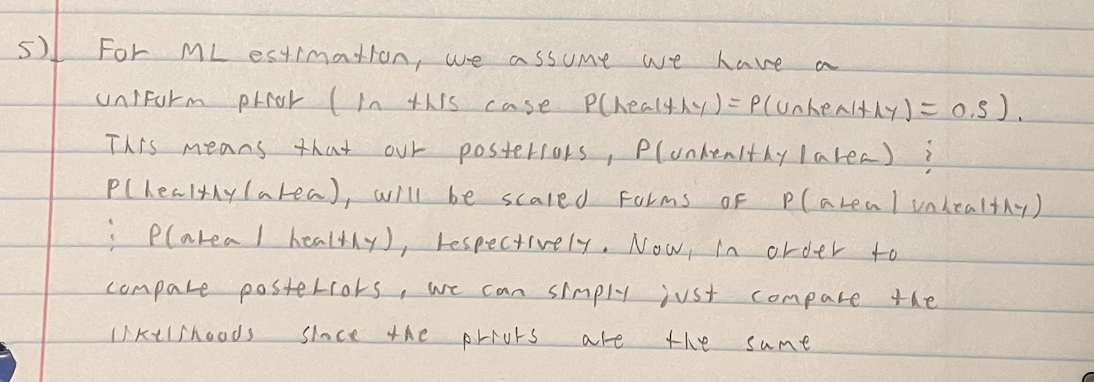 5) For ML estimation, we assume we have a
uniform prior (in this case P(healthy)=P(unhealthy)= 0.5).
This means that our posteriors, P(unhealthy|area) &
P(healthy|area), will be scaled forms of P(area|unhealthy)
& P(area|healthy), respectively. Now, in order to
compare posteriors, we can simply just compare the
likelihoods since the priors are the same